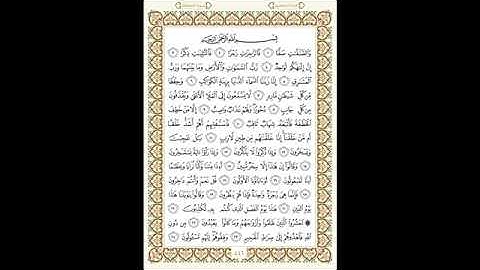 بِسْمِ ٱللَّهِ ٱلرَّحْمَٰنِ ٱلرَّحِيمِ
وَٱلصَّٰٓفَّٰتِ صَفًّا ١ فَٱلزَّٰجِرَٰتِ زَجْرًا ٢ فَٱلتَّٰلِيَٰتِ ذِكْرًا ٣
إِنَّ إِلَٰهَكُمْ لَوَٰحِدٌ ٤ رَّبُّ ٱلسَّمَٰوَٰتِ وَٱلْأَرْضِ وَمَا بَيْنَهُمَا وَرَبُّ
ٱلْمَشَٰرِقِ ٥ إِنَّا زَيَّنَّا ٱلسَّمَآءَ ٱلدُّنْيَا بِزِينَةٍ ٱلْكَوَاكِبِ ٦ وَحِفْظًا
مِّن كُلِّ شَيْطَٰنٍ مَّارِدٍ ٧ لَّا يَسَّمَّعُونَ إِلَى ٱلْمَلَإِ ٱلْأَعْلَىٰ وَيُقْذَفُونَ
مِن كُلِّ جَانِبٍ ٨ دُحُورًا وَلَهُمْ عَذَابٌ وَاصِبٌ ٩ إِلَّا مَنْ خَطِفَ
ٱلْخَطْفَةَ فَأَتْبَعَهُۥ شِهَابٌ ثَاقِبٌ ١٠ فَٱسْتَفْتِهِمْ أَهُمْ أَشَدُّ خَلْقًا
أَم مَّنْ خَلَقْنَآ إِنَّا خَلَقْنَٰهُم مِّن طِينٍ لَّازِبٍ ١١ بَلْ عَجِبْتَ
وَيَسْخَرُونَ ١٢ وَإِذَا ذُكِّرُوا۟ لَا يَذْكُرُونَ ١٣ وَإِذَا رَأَوْا۟ ءَايَةً يَسْتَسْخِرُونَ
١٤ وَقَالُوٓا۟ إِنْ هَٰذَآ إِلَّا سِحْرٌ مُّبِينٌ ١٥ أَءِذَا مِتْنَا وَكُنَّا تُرَابًا وَعِظَٰمًا
أَءِنَّا لَمَبْعُوثُونَ ١٦ أَوَءَابَآؤُنَا ٱلْأَوَّلُونَ ١٧ قُلْ نَعَمْ وَأَنتُمْ دَٰخِرُونَ
١٨ فَإِنَّمَا هِىَ زَجْرَةٌ وَٰحِدَةٌ فَإِذَا هُمْ يَنظُرُونَ ١٩ وَقَالُوا۟ يَٰوَيْلَنَا هَٰذَا
يَوْمُ ٱلدِّينِ ٢٠ هَٰذَا يَوْمُ ٱلْفَصْلِ ٱلَّذِى كُنتُم بِهِۦ تُكَذِّبُونَ ٢١
۞ ٱحْشُرُوا۟ ٱلَّذِينَ ظَلَمُوا۟ وَأَزْوَٰجَهُمْ وَمَا كَانُوا۟ يَعْبُدُونَ ٢٢ مِن دُونِ
ٱللَّهِ فَٱهْدُوهُمْ إِلَىٰ صِرَٰطِ ٱلْجَحِيمِ ٢٣ وَقِفُوهُمْ إِنَّهُم مَّسْـُٔولُونَ ٢٤
٤٤٦